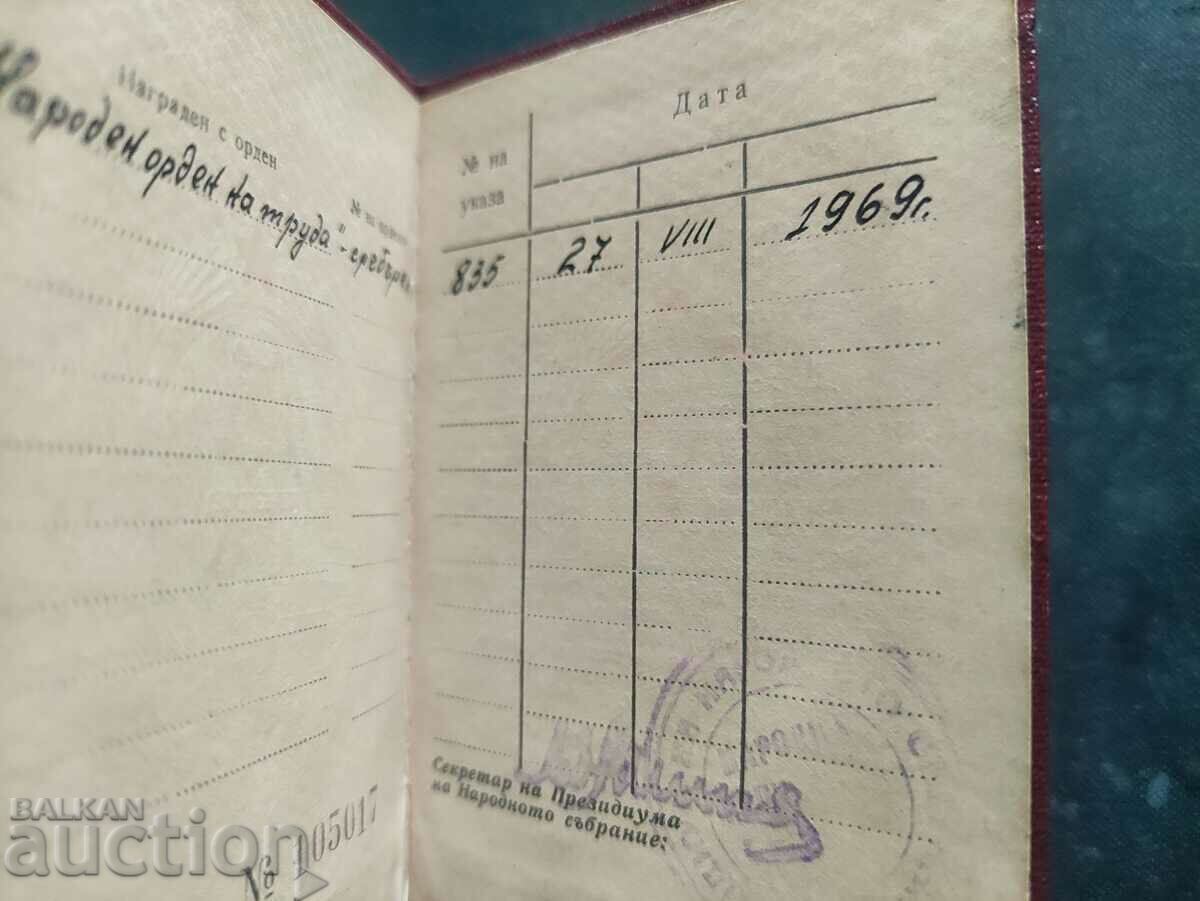 Награден с орден
№ на
„Народен орден на труда" -
Дата
№ на
указа
835 27 VIII 1969 г.
Секретар на Президиума
на Народното събрание:
№ 105017
BALKAN
auction